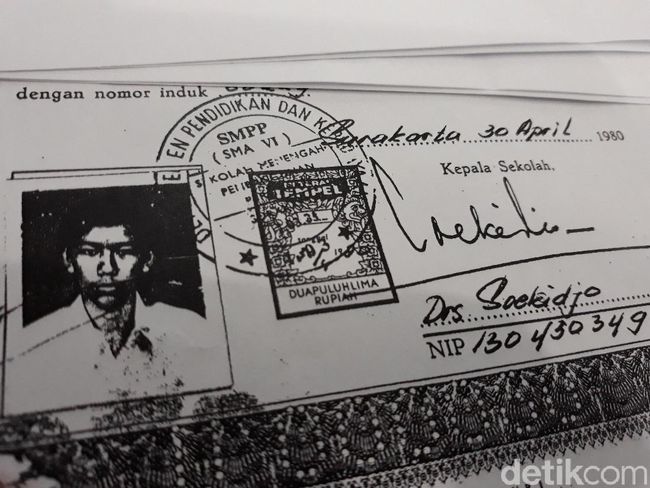 dengan nomor induk
EN PENDIDIKAN DAN KE
SMPP
( SMA VI )
KOLAH MENENGAH
Surakarta 30 April 1980
Kepala Sekolah,
TEMPEL
25
DUAPULUHLIMA
RUPIAH
Drs Soekidjo
NIP 130430349
detikcom